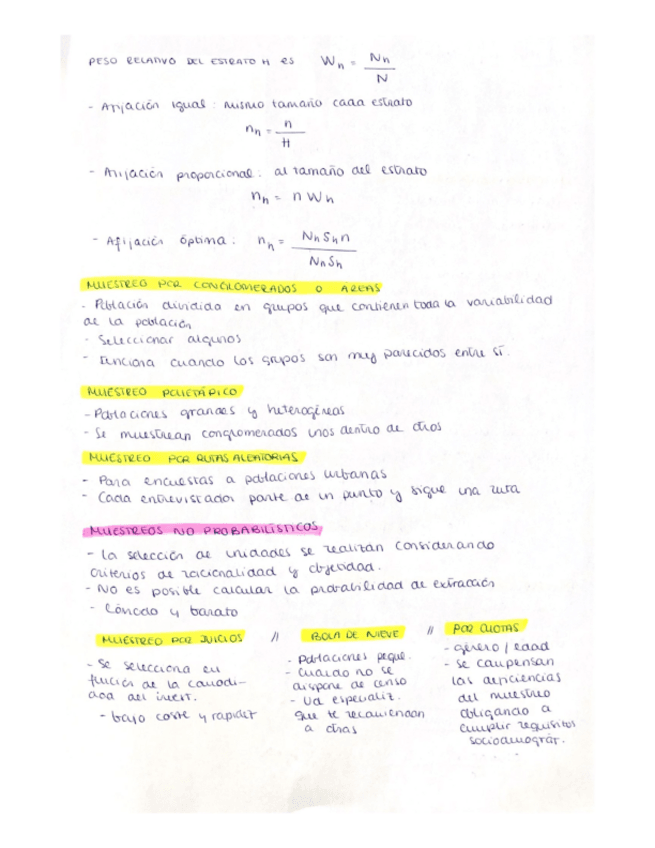 PESO RELATIVO DEL ESTRATO H ES Wh = Nh / N
- Afijación igual: mismo tamaño cada estrato
nh = n / H
- Afijación proporcional: al tamaño del estrato
nh = n Wh
- Afijación óptima: nh = Nh Sh n / Nh Sh
MUESTREO POR CONGLOMERADOS O AREAS
- Población dividida en grupos que contienen toda la variabilidad
de la población
- Seleccionar algunos
- Funciona cuando los grupos son muy parecidos entre sí.
MUESTREO POLIETÁPICO
- Poblaciones grandes y heterogéneas
- Se muestrean conglomerados unos dentro de otros
MUESTREO POR RUTAS ALEATORIAS
- Para encuestas a poblaciones urbanas
- Cada entrevistador parte de un punto y sigue una ruta
MUESTREOS NO PROBABILÍSTICOS
- La selección de unidades se realizan considerando
criterios de racionalidad y objetividad.
- No es posible calcular la probabilidad de extracción
- Cómodo y barato
MUESTREO POR JUICIOS // BOLA DE NIEVE // POR CUOTAS
- Se selecciona en
función de la comodi-
dad del invest.
- bajo coste y rapidez
- Poblaciones peque.
- Cuando no se
dispone de censo
- Ud especializ.
que te recomiendan
a otras
- género / edad
- Se compensan
las deficiencias
del muestreo
obligando a
cumplir requisitos
sociodemográf.